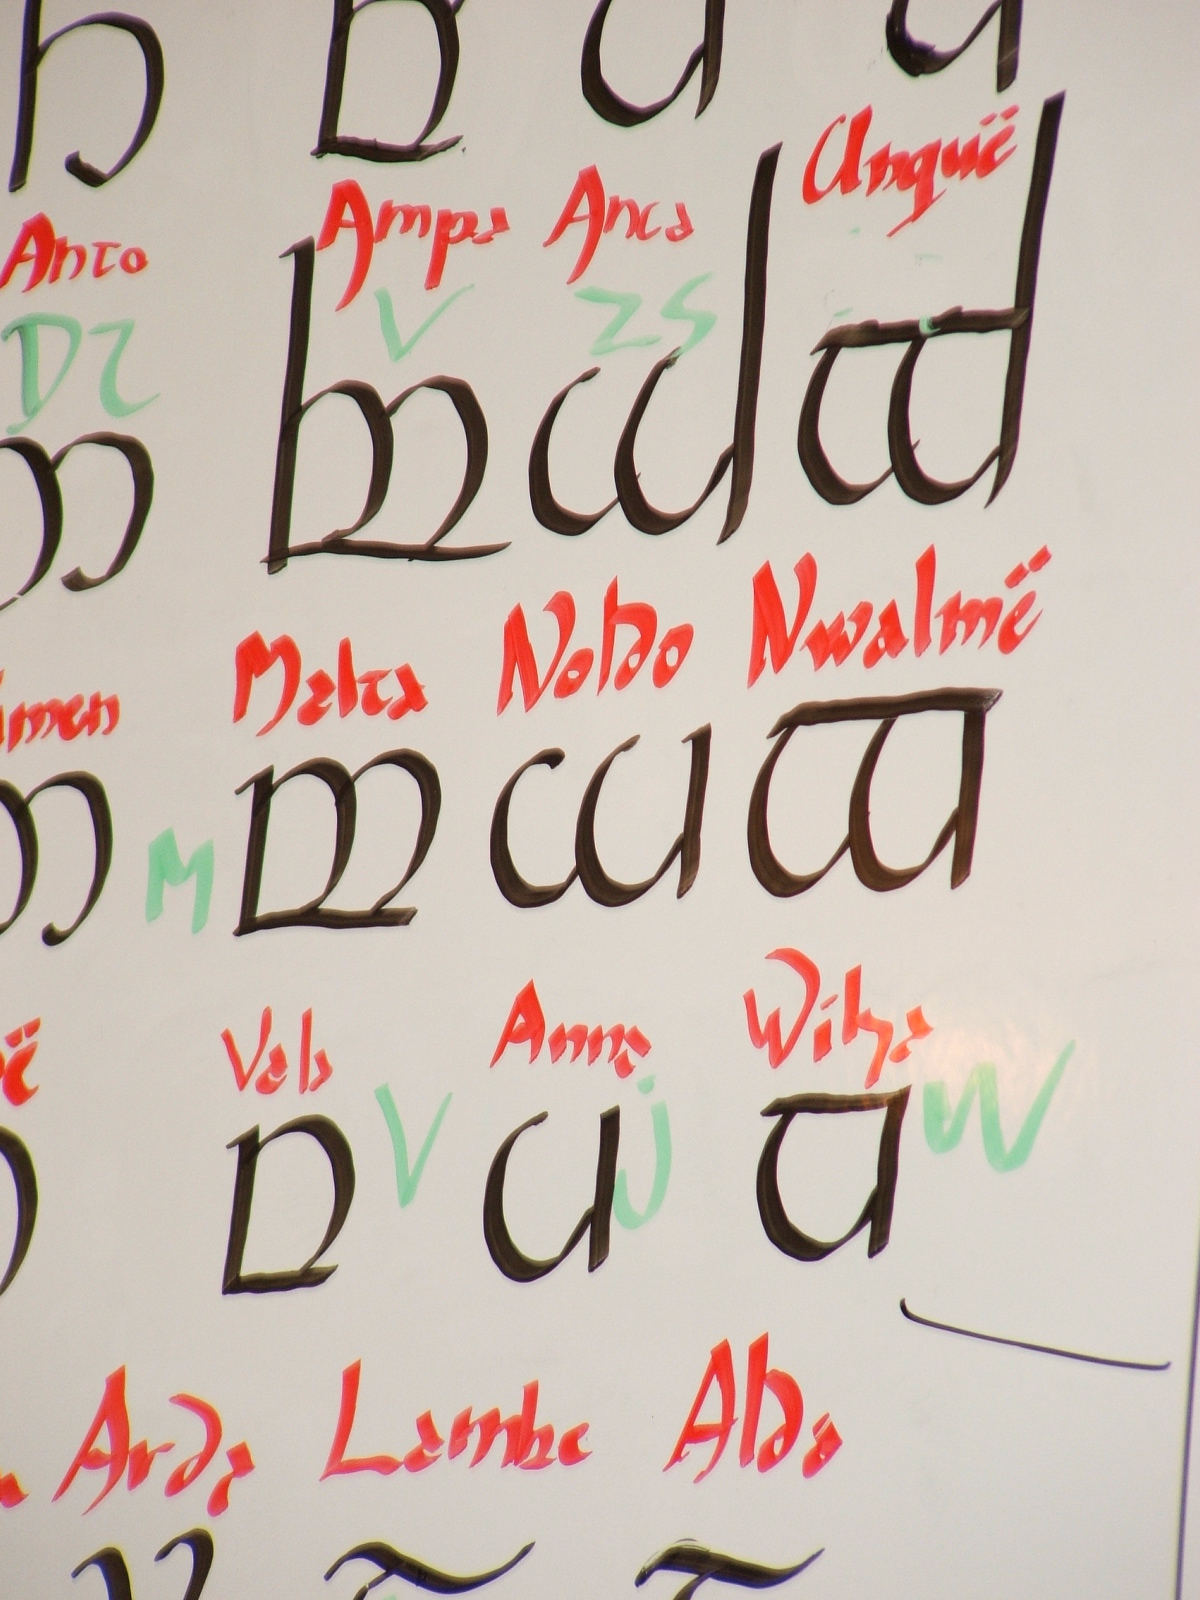 Anto Ampa Anca Unquë
DZ V ZS
Malta Noldo Nwalmë
M
Vala Anna Wilya
V J W
Arda Lambe Alda